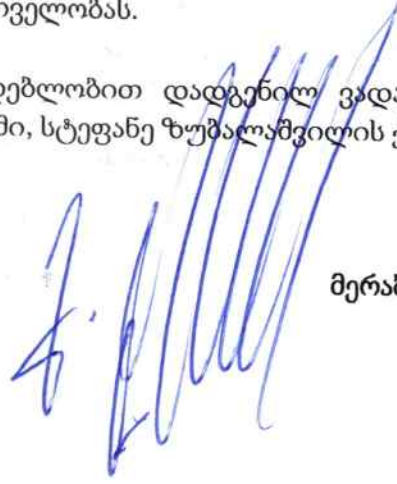 ველობას.
ებლობით დადგენილ ვადა
ში, სტეფანე ზუბალაშვილის
მერაბ